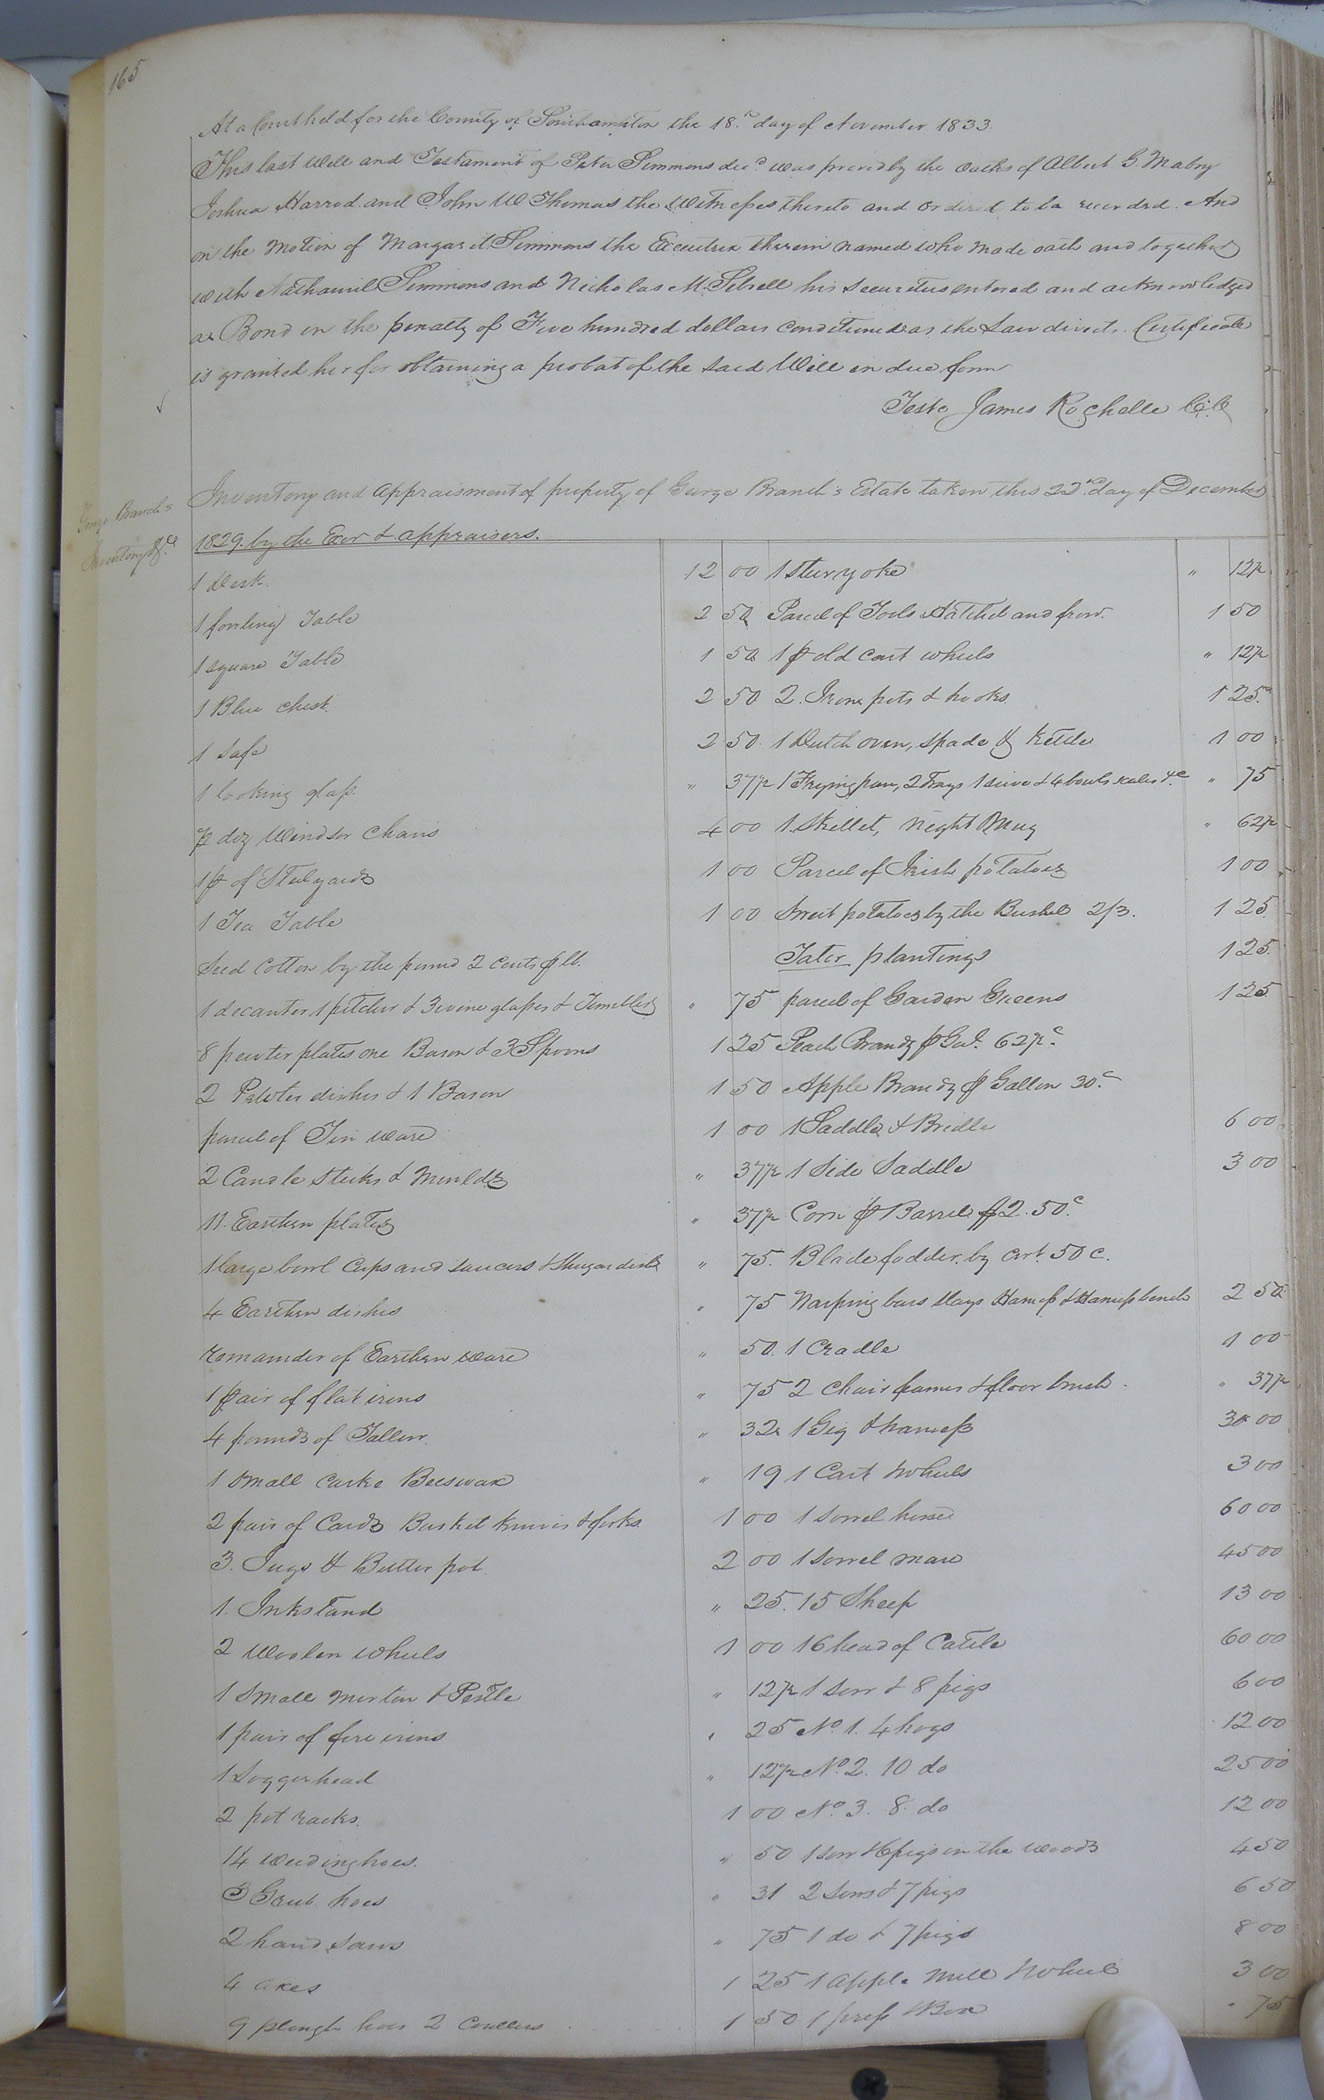 165
At a Court held for the County of Southampton the 18.th day of November 1833.
This last Will and Testament of Peter Simmons dec.d was proved by the oaths of Albert G. Mabry
Joshua Harrod and John W. Thomas the Witnesses thereto and ordered to be recorded. And
on the Motion of Margaret Simmons the Executrix therein named who made oath and together
with Nathaniel Simmons and Nicholas M. Sebrell his securities entered and acknowledged
a Bond in the penalty of Five hundred dollars conditioned as the Law directs. Certificate
is granted her for obtaining a probat of the said Will in due form
Teste James Rochelle C.C.
George Branch's
Inventory &c.a
Inventory and Appraisment of property of George Branch's Estate taken this 22nd day of December
1829. by the Exor & appraisers.
1 Desk. 12 00
1 Table 2 50
1 square Table 1 50
1 Blue chest. 2 50
1 Safe 2 50
1 looking glass. " 37½
½ doz Windsor Chairs 4 00
1 pr of Steelyards 1 00
1 Tea Table 1 00
Seed Cotton by the pound 2 Cents pr lb.
1 decanter 1 pitcher & 3 wine glasses & Tumbler " 75
8 pewter plates one Bason & 3 Spoons 1 25
2 Pewter dishes & 1 Bason 1 50
parcel of Tin ware 1 00
2 Candle Sticks & Moulds " 37½
11. Earthen plates " 37½
1 large bowl Cups and saucers & Shugar dish " 75.
4 Earthen dishes " 75
remainder of Earthen ware " 50.
1 pair of flat irons " 75
4 pounds of Tallow. " 32
1 small cake Beeswax " 19
2 pair of Cards Basket knives & forks. 1 00
3. Jugs & Butter pot. 2 00
1. Inkstand " 25.
2 Woolen wheels 1 00
1 Small Mortar & Pestle " 12½
1 pair of fire irons " 25
1 Loggerhead " 12½
2 pot racks. 1 00
14 Weeding hoes. " 50
3 Grub hoes " 31
2 hand saws " 75
4 axes 1 25
9 plough hoes 2 Coulters 1 50
1 Steer yoke " 12½
Parcel of Tools Hatchet and frow. 1 50
1 pr old cart wheels " 12½
2. Irone pots & hooks 1 25
1 Dutch oven, spade & Kettle 1 00
1 Frying pan, 2 Trays 1 sieve & 4 bowls scales &c " 75
1. Skillet, Night Mug " 62½
Parcel of Irish potatoes 1 00
Sweet potatoes by the Bushel 2/3. 1 25
Tater plantings 1 25
parcel of Garden Greens 1 25
Peach Brandy pr Gal. 62½c.
Apple Brandy pr Gallon 30.c
1 Saddle & Bridle 6 00
1 Side Saddle 3 00
Corn pr Barrel $2.50c.
Blade fodder. by Cwt. 50 c.
Warping bars Slays Harness & Harness bench 2 50
1 Cradle 1 00
2 Chair frames & floor brush. " 37½
1 Gig & harness 30 00
1 Cart Wheels 3 00
1 Sorrel horse 60 00
1 Sorrel mare 45 00
15 Sheep 13 00
16 head of Cattle 60 00
1 sow & 8 pigs 6 00
No. 1. 4 hogs 12 00
No. 2. 10 do 25 00
No. 3. 8. do 12 00
1 sow & 6 pigs in the woods 4 50
2 sows & 7 pigs 6 50
1 do & 7 pigs 8 00
1 apple Mill Wheel 3 00
1 press & Box " 75